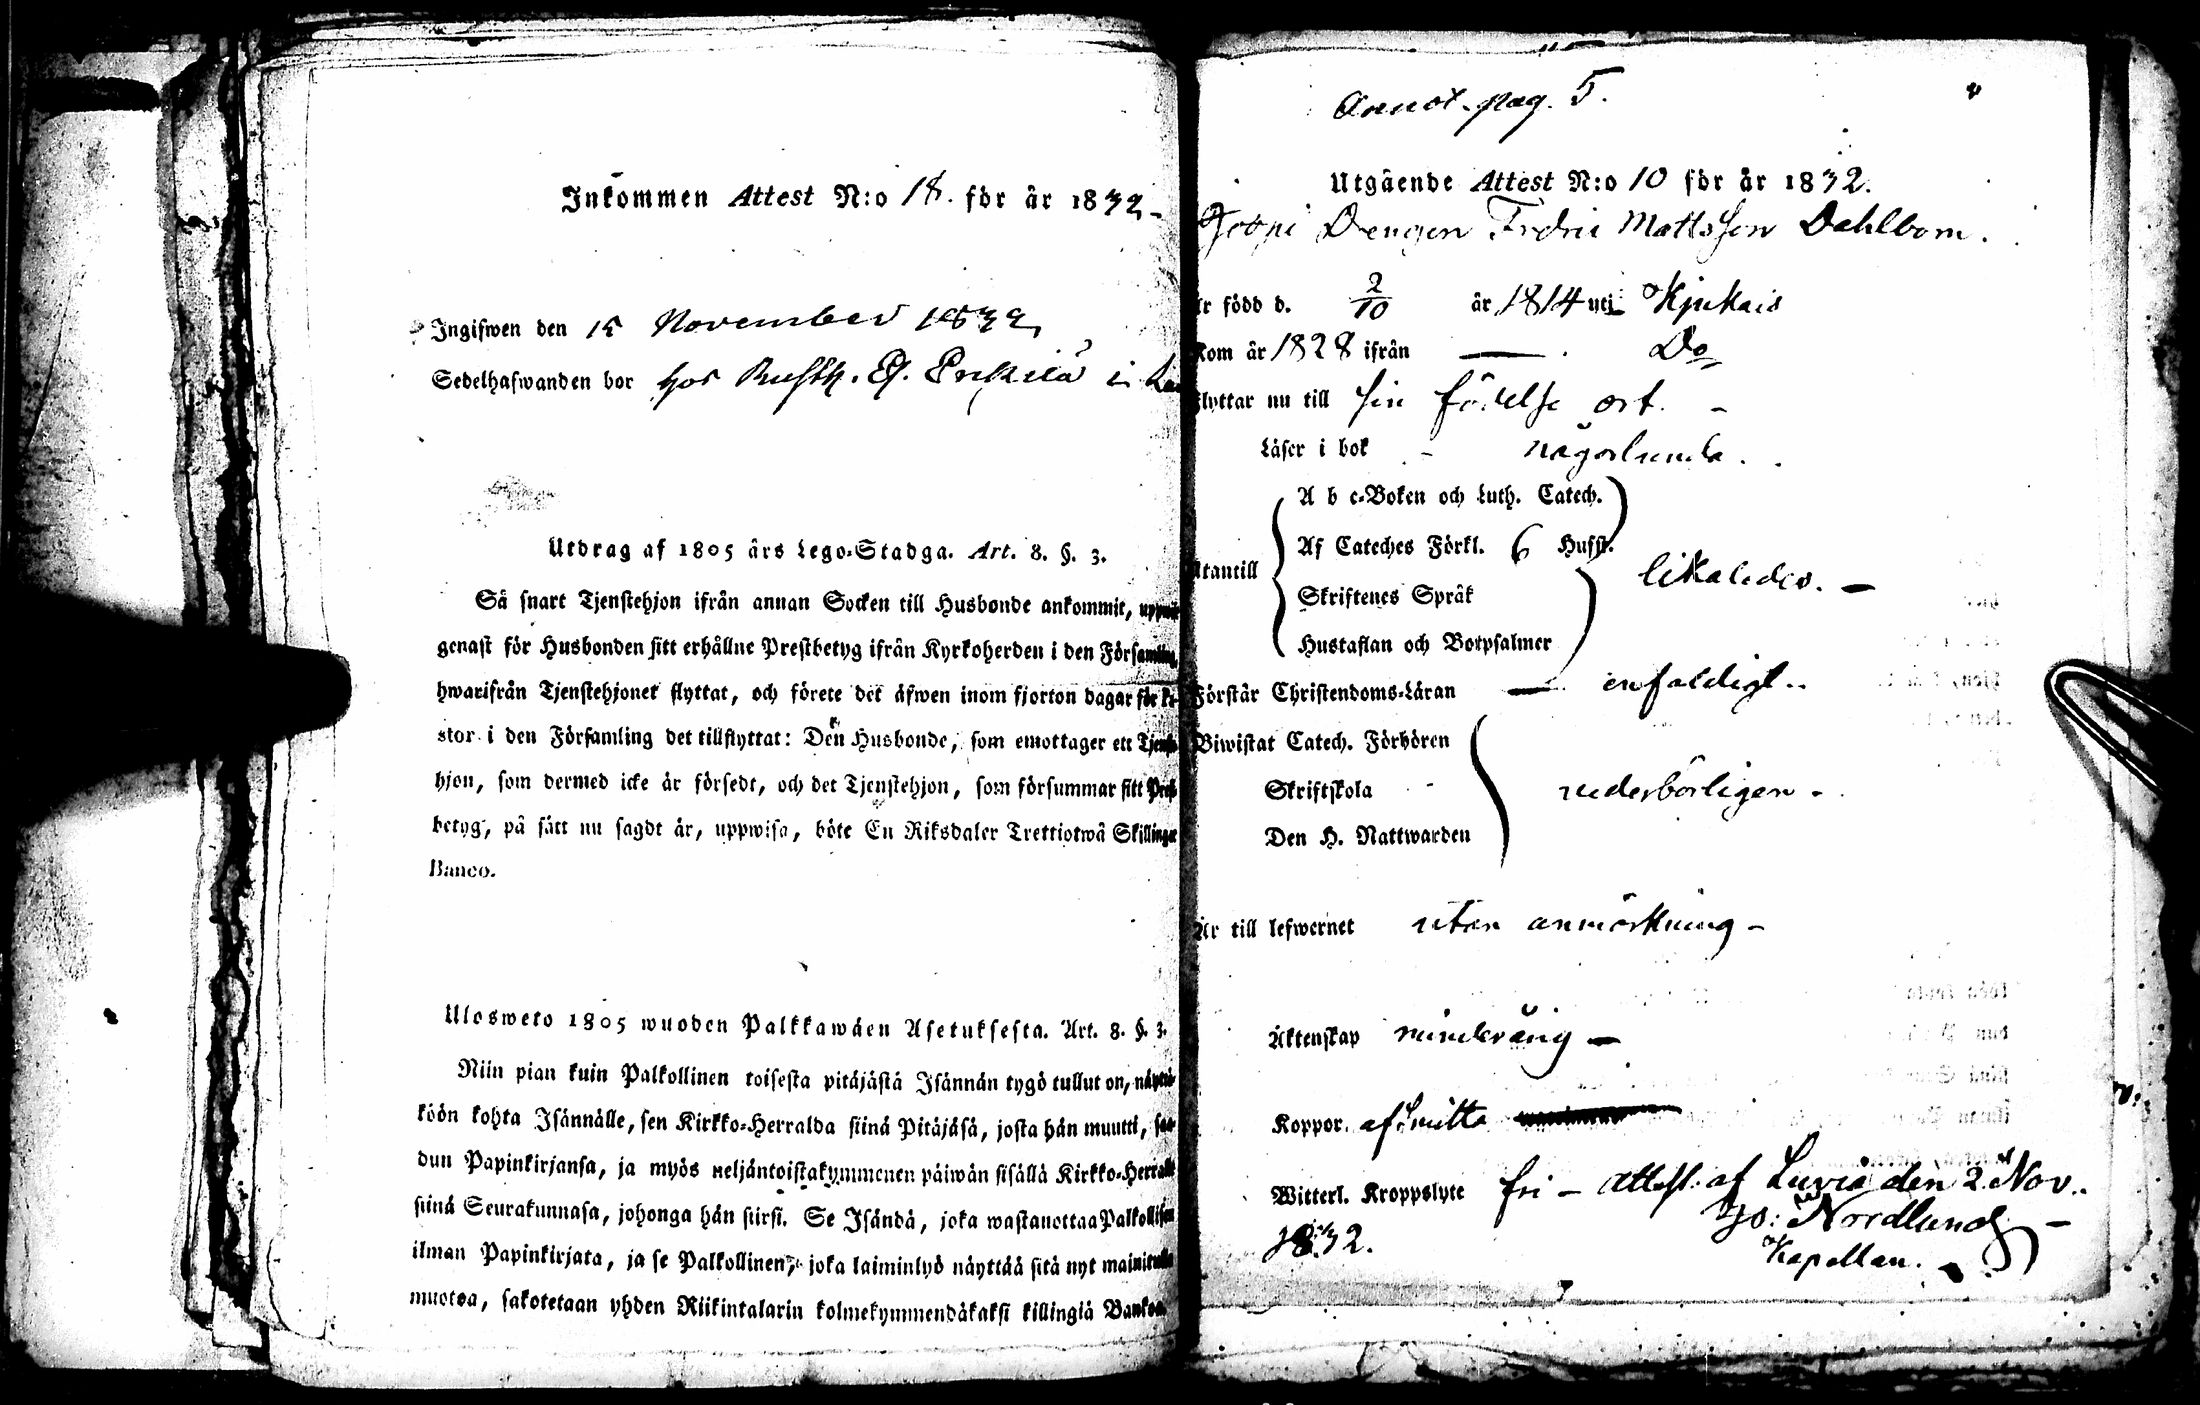 Inkommen Attest N:o 18. för år 1832 -
Ingifwen den 15 November 1832
Sedelhafwanden bor hos Rusth. i
Utdrag af 1805 års Lego-Stadga. Art. 8. §. 3.
Så snart Tjenstehjon ifrån annan Socken till Husbonde ankommit,
genast för Husbonden sitt erhållne Prestbetyg ifrån Kyrkoherden i den Församling,
hwarifrån Tjenstehjonet flyttat, och förete det äfwen inom fjorton dagar för
stor i den Församling det tillflyttat: Den Husbonde, som emottager ett
hjon, som dermed icke är försedt, och det Tjenstehjon, som försummar sitt
betyg, på sätt nu sagdt är, uppwisa, böte En Riksdaler Trettiotwå Skillingar
Banco.
Ulosweto 1805 wuoden Palkkawäen Asetuksesta. Art. 8. §. 3.
Niin pian kuin Palkollinen toisesta pitäjästä Isännän tygö tullut on,
köön kohta Isännälle, sen Kirkko-Herralda siinä Pitäjäsä, josta hän muutti,
dun Papinkirjansa, ja myös neljäntoistakymmenen päiwän sisällä Kirkko-
siinä Seurakunnasa, johonga hän siirsi. Se Isändä, joka wastanottaa
ilman Papinkirjata, ja se Palkollinen, joka laiminlyö näyttää sitä nyt
muotoa, sakotetaan yhden Riikintalarin kolmekymmendäkaksi killingiä
Annot. pag. 5.
Utgående Attest N:o 10 för år 1832.
Drengen Fredric Mattsson Dahlbom.
är född d. 2/10 år 1814 uti Kjukais
Kom år 1828 ifrån — . Do
flyttar nu till sin födelse ort. -
Läser i bok - någorlunda.
A b c-Boken och Luth. Catech.
Af Cateches Förkl. 6 Hufst.
Utantill
likaledes. -
Skriftenes Språk
Hustaflan och Botpsalmer
Förstår Christendoms-Läran — enfaldigt..
Biwistat Catech. Förhören
Skriftskola - vederbörligen -
Den H. Nattwarden
Är till lefwernet utan anmärkning -
Äktenskap minderårig -
Koppor.
Witterl. Kroppslyte fri - attest. af Luvia den 2 Nov.
1832.
Jo: Nordlund -
Kapellan.